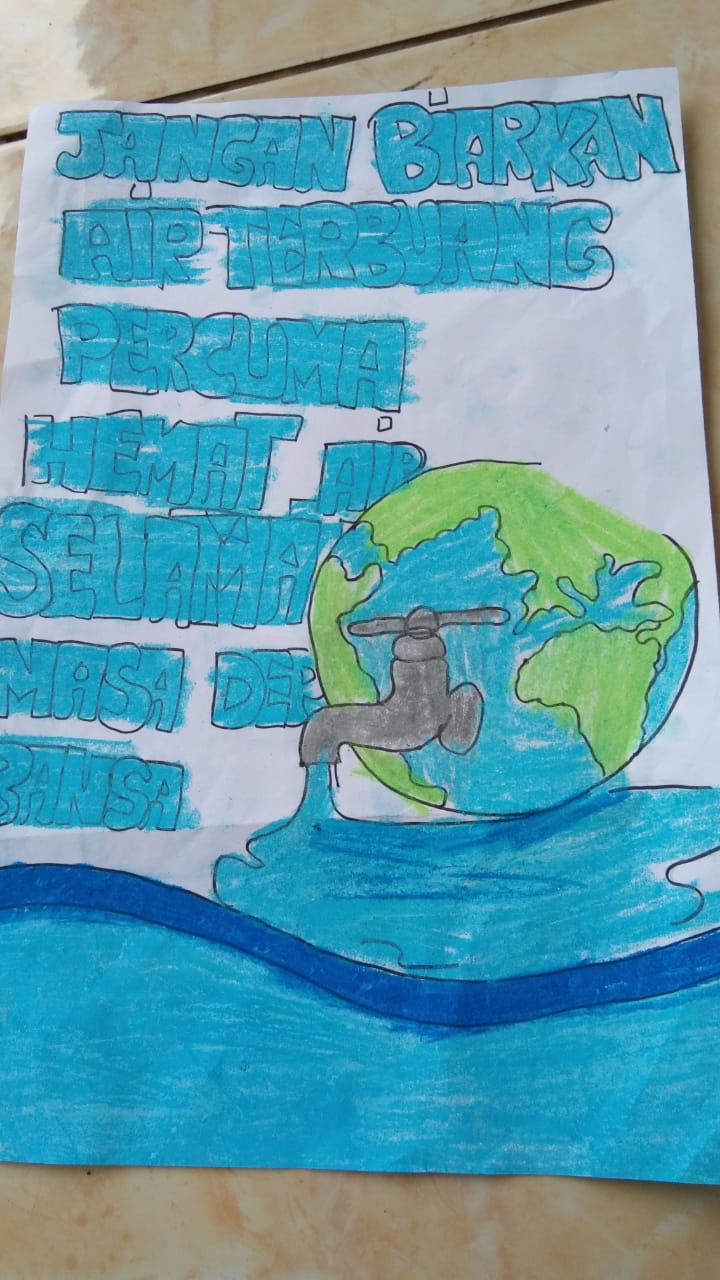 JANGAN BIARKAN
AIR TERBUANG
PERCUMA
HEMAT AIR
SELAMA
MASA DEP
BANSA